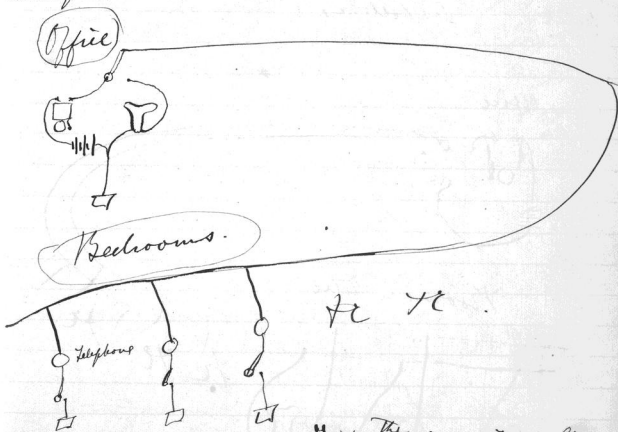 Office
Bedrooms.
&c &c.
Telephone